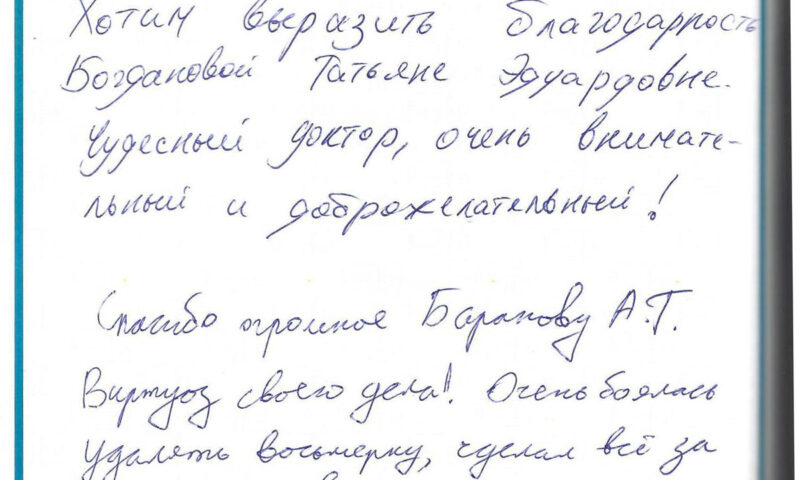 Хотим выразить благодарность
Богдановой Татьяне Эдуардовне.
Чудесный доктор, очень внимате-
льный и доброжелательный!
Спасибо огромное Баранову А.Г.
Виртуоз своего дела! Очень боялась
удалять восьмерку, сделал всё за